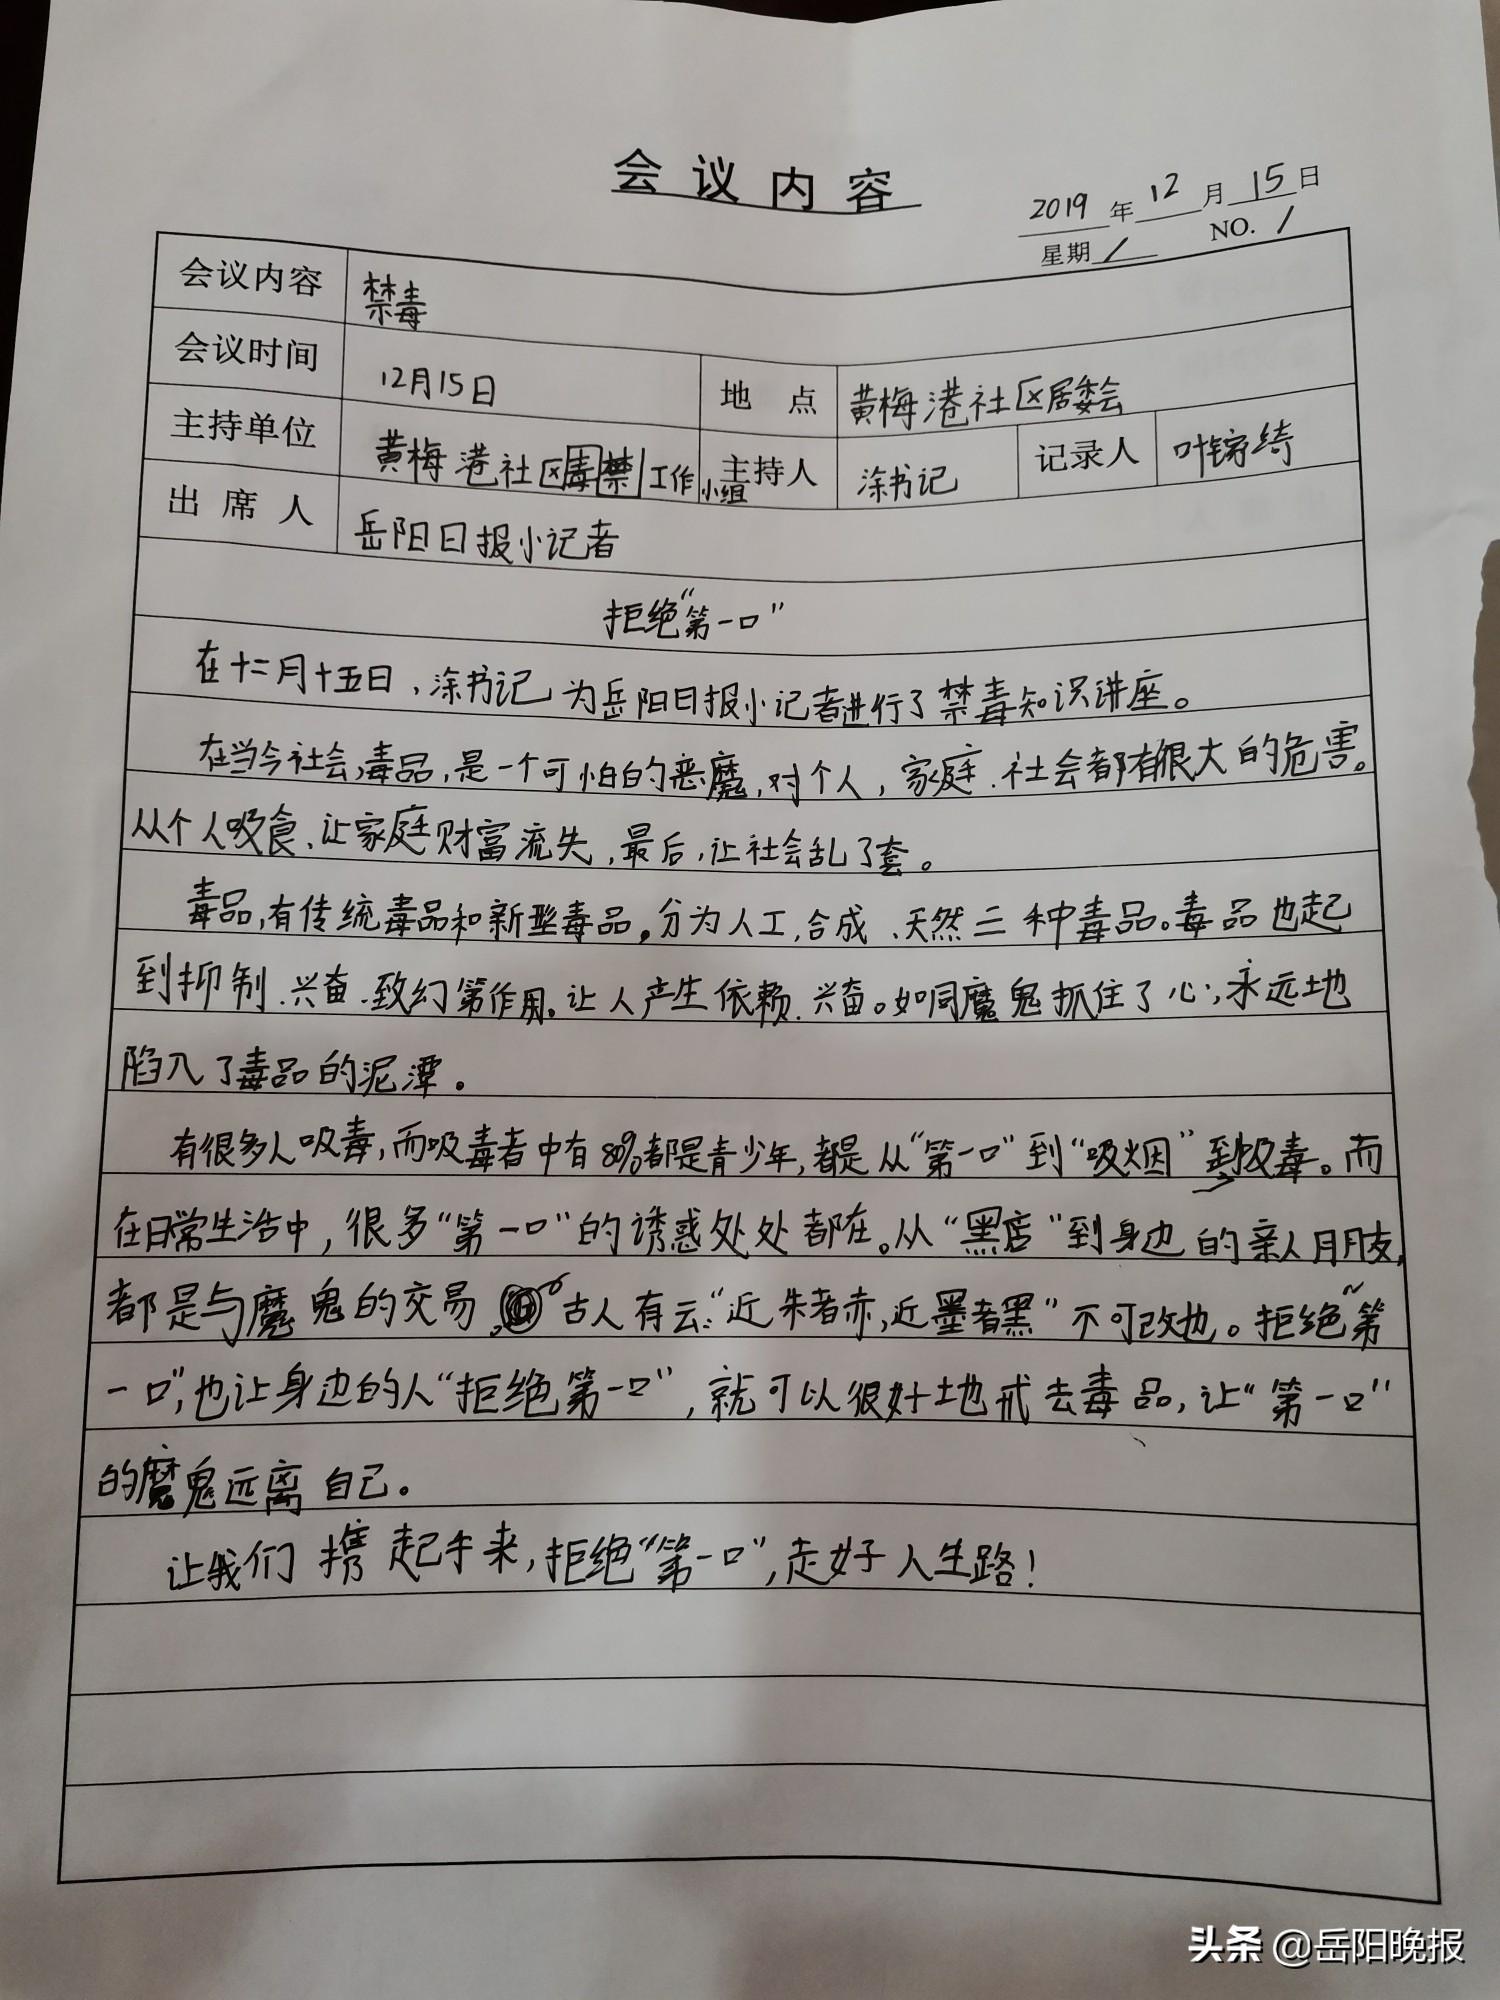 会议内容
2019年12月15日
星期/ NO. /
会议内容 禁毒
会议时间 12月15日 地点 黄梅港社区居委会
主持单位 黄梅港社区毒禁工作小组 主持人 涂书记 记录人 叶镓绮
出席人 岳阳日报小记者
拒绝“第一口”
在十二月十五日,涂书记为岳阳日报小记者进行了禁毒知识讲座。
在当今社会,毒品,是一个可怕的恶魔,对个人,家庭、社会都有很大的危害。
从个人吸食、让家庭财富流失,最后,让社会乱了套。
毒品,有传统毒品和新型毒品。分为人工,合成、天然三种毒品。毒品也起
到抑制、兴奋、致幻第作用。让人产生依赖、兴奋。如同魔鬼抓住了心,永远地
陷入了毒品的泥潭。
有很多人吸毒,而吸毒者中有80%都是青少年,都是从“第一口”到“吸烟”到吸毒。而
在日常生活中,很多“第一口”的诱惑处处都在。从“黑店”到身边的亲人朋友,
都是与魔鬼的交易。古人有云:“近朱者赤,近墨者黑”不可改也。拒绝“第
一口”,也让身边的人“拒绝第一口”,就可以很好地戒去毒品,让“第一口”
的魔鬼远离自己。
让我们携起手来,拒绝“第一口”,走好人生路!
头条 @岳阳晚报